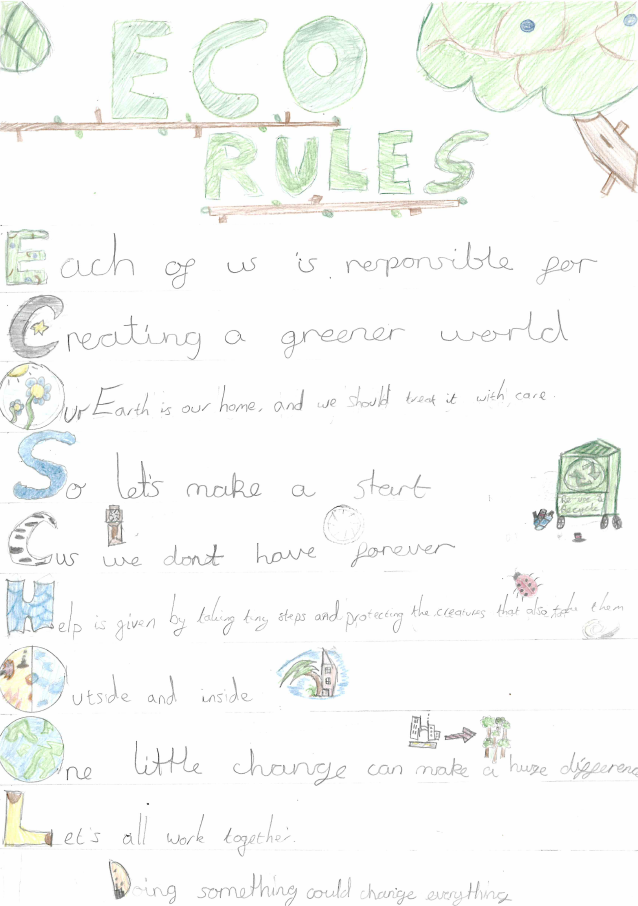 ECO
RULES
Each of us is responsible for
Creating a greener world
Our Earth is our home, and we should treat it with care.
So let's make a start
Re-use &
Recycle
Cus we dont have forever
Help is given by taking tiny steps and protecting the creatures that also take them
Outside and inside
One little change can make a huge difference
Let's all work together.
Doing something could change everything